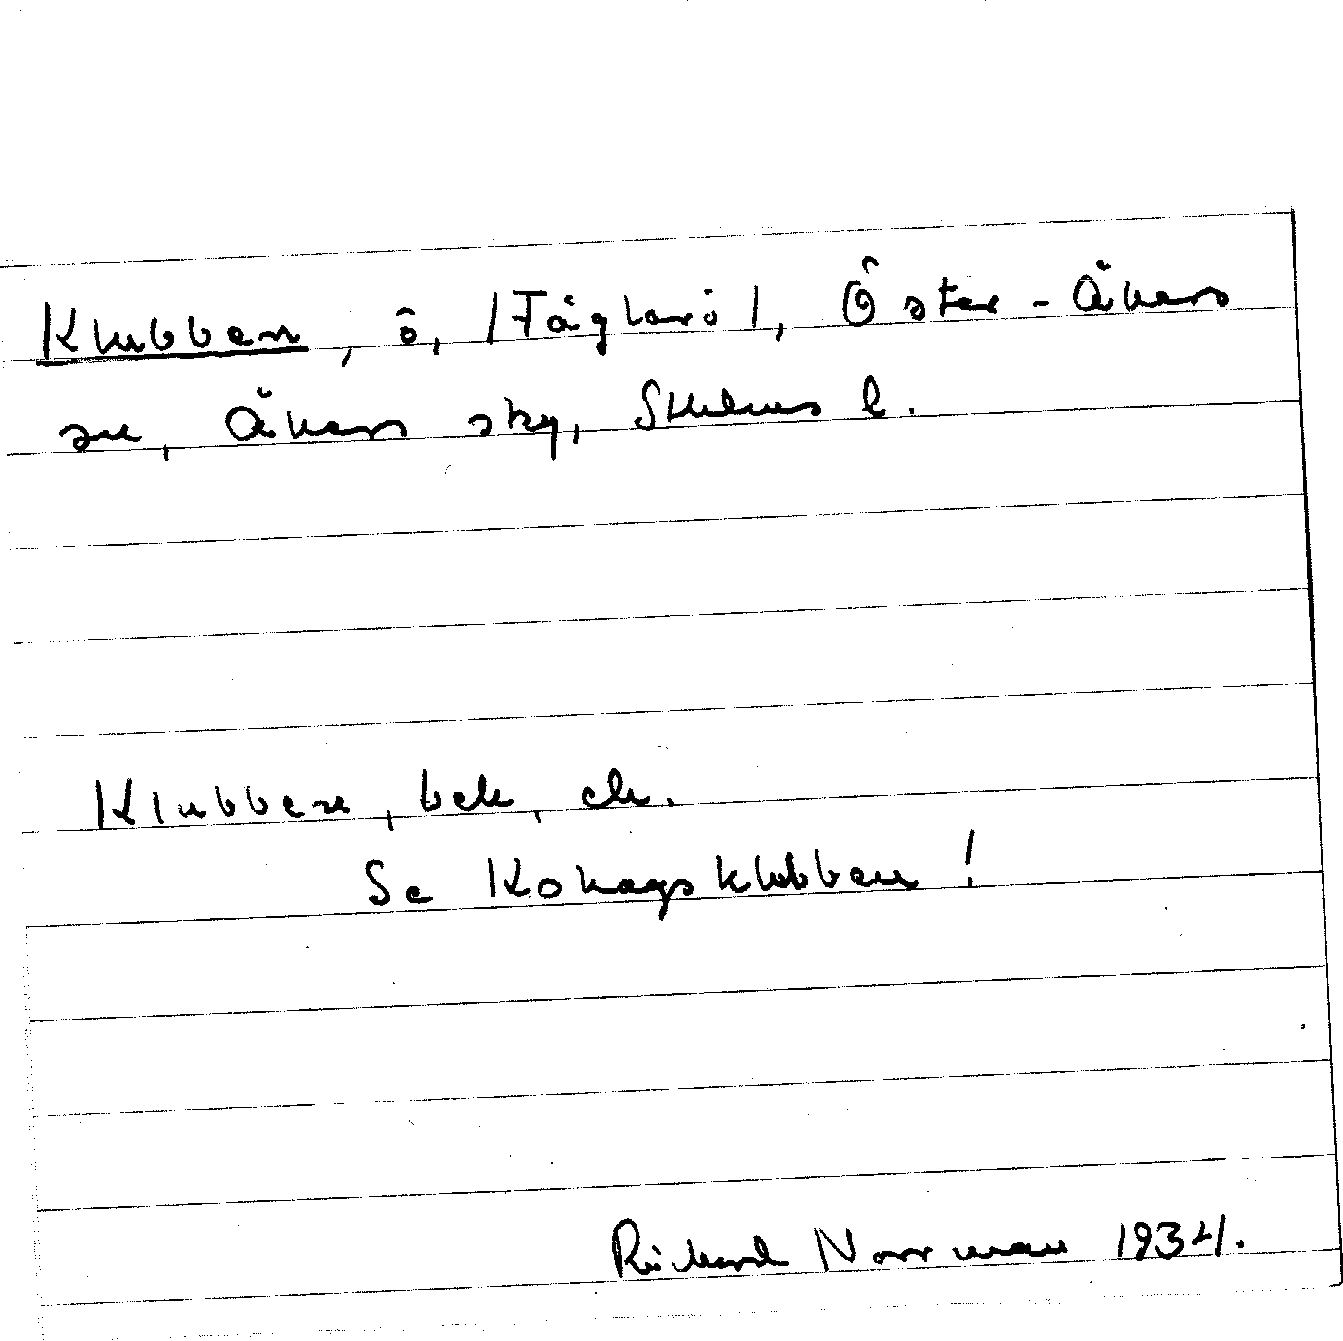 Klubben, ö, /Fåglarö/, Öster-Åkers
sn, Åkers sky, Sthlms l.
Klubben, bek, ek.
Se Kohagsklubben!
Rickard Norrman 1934.